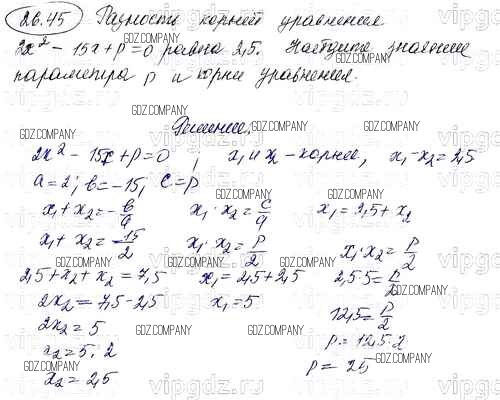 26.45 Разность корней уравнения
2x² - 15x + p = 0 равна 2,5. Найдите значение
параметра p и корни уравнения.
GDZ.COMPANY
Решение.
2x² - 15x + p = 0 ; x₁ и x₂ - корни, x₁ - x₂ = 2,5
a = 2; b = -15; c = p
x₁ + x₂ = -b/a x₁ · x₂ = c/a x₁ = 2,5 + x₂
x₁ + x₂ = 15/2 x₁ · x₂ = p/2 x₁ · x₂ = p/2
2,5 + x₂ + x₂ = 7,5 x₁ = 2,5 + 2,5 2,5 · 5 = p/2
2x₂ = 7,5 - 2,5 x₁ = 5 12,5 = p/2
2x₂ = 5 p = 12,5 · 2
x₂ = 5 : 2 p = 25
x₂ = 2,5
vipgdz.ru